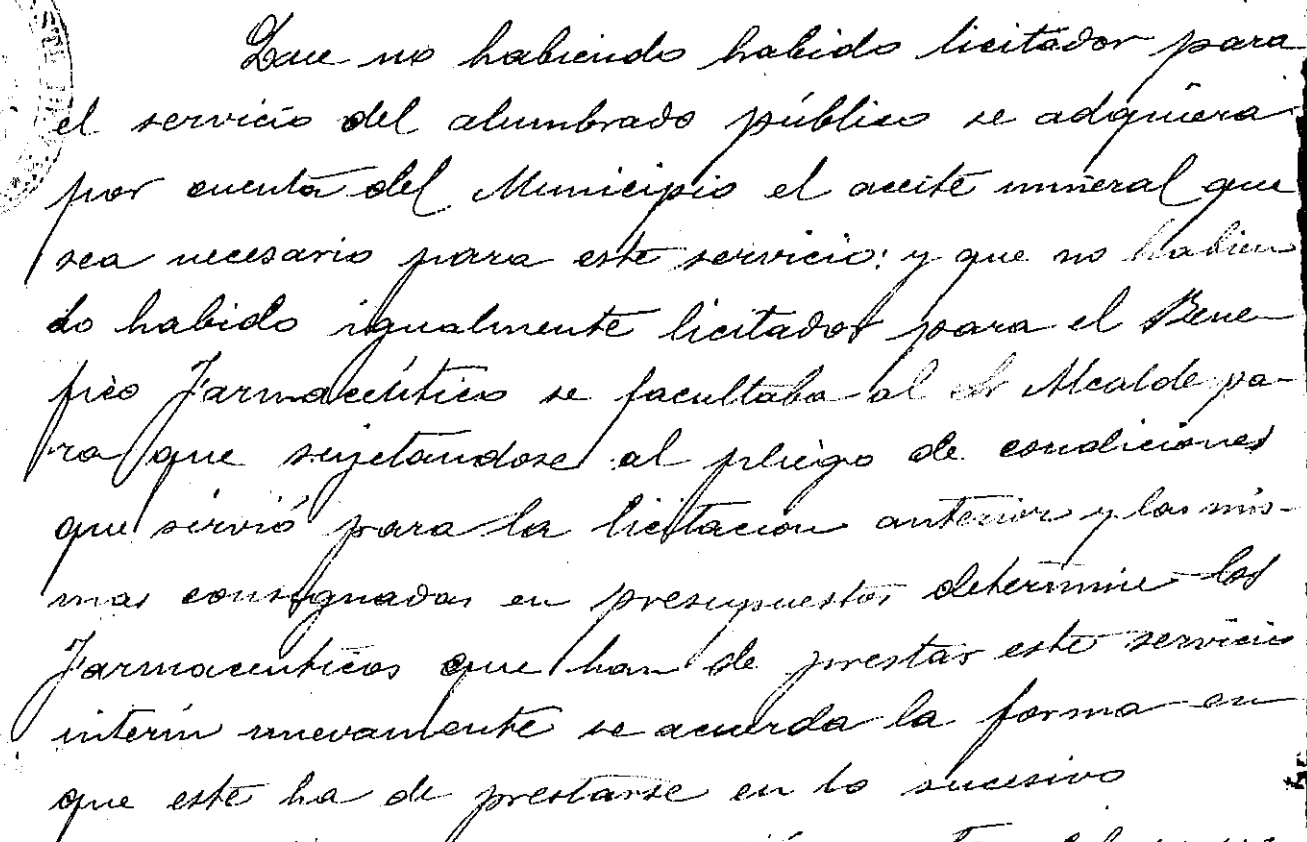 Que no habiendo habido licitador para
el servicio del alumbrado público se adquiera
por cuenta del Municipio el aceite mineral que
sea necesario para este servicio: y que no habien
do habido igualmente licitador para el Bene
fico Farmacéutico se facultaba al Sr Alcalde pa-
ra que sujetandose al pliego de condiciones
que sirvió para la licitacion anterior y las mis-
mas consignadas en presupuestos determine los
Farmaceuticos que han de prestar este servicio
interin nuevamente se acuerda la forma en
que este ha de prestarse en lo sucesivo